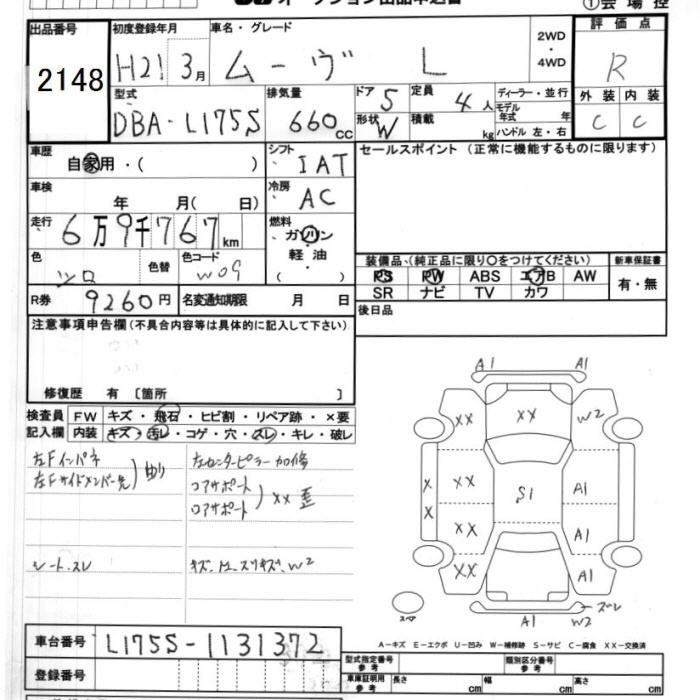 オークション出品申込書
①会場控
出品番号 初度登録年月 車名・グレード 2WD・4WD 評価点
2148 H21 3月 ムーヴ L R
型式 排気量 ドア 5 定員 4人 ディーラー・並行 外装 内装
DBA-L175S 660cc 形状 W 積載 kg モデル年式 年 ハンドル 左・右 C C
車歴 自家用・( ) シフト IAT セールスポイント (正常に機能するものに限ります)
車検 年 月( 日) 冷房 AC
走行 6万9千767km 燃料 ガソリン 軽油 ( )
色 シロ 色替 色コード W09 装備品 (純正品に限り〇をつけてください) 新車保証書
PS PW ABS エアB AW 有・無
SR ナビ TV カワ
R券 9260円 名変通知期限 月 日 後日品
注意事項申告欄(不具合内容等は具体的に記入して下さい)
修復歴 有 〔箇所 〕
検査員 FW キズ・飛石・ヒビ割・リペア跡・×要
記入欄 内装 キズ・汚レ・コゲ・穴・スレ・キレ・破レ
左Fインパネ
左Fサイドメンバー先
左センターピラー加修
コアサポート
ロアサポート
XX 歪
シート、スレ
W2
A1 A1
XX XX W2
X XX S1 A1
X XX A1
XX A1
スペア A1 W2 スレ
A-キズ E-エクボ U-凹み W-補修跡 S-サビ C-腐食 XX-交換済
車台番号 L175S-1131372
登録番号
型式指定番号 参考 類別区分番号 参考
車庫証明用 参考 長さ cm 幅 cm 高さ cm